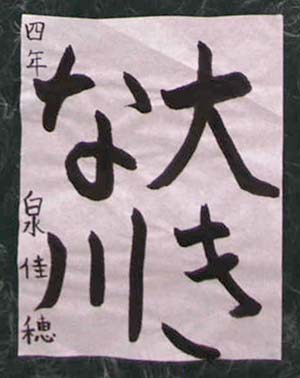 大き
な川
四年 泉佳穂